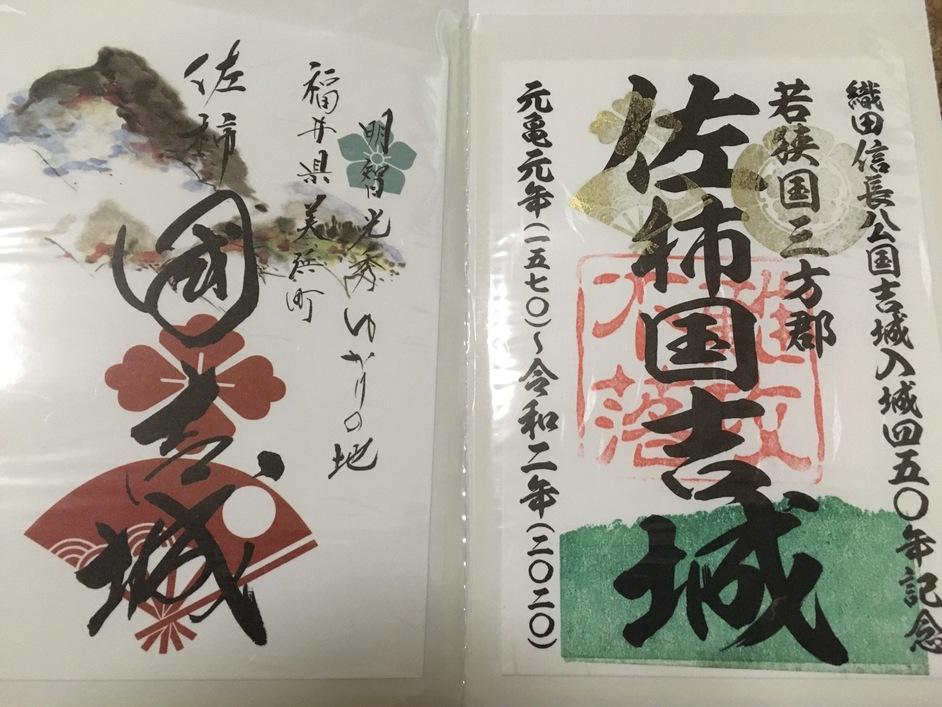 織田信長公国吉城入城四五〇年記念
若狭国三方郡
佐柿国吉城
難攻
不落
元亀元年(一五七〇)～令和二年(二〇二〇)
明智光秀ゆかりの地
福井県美浜町
佐柿國吉城